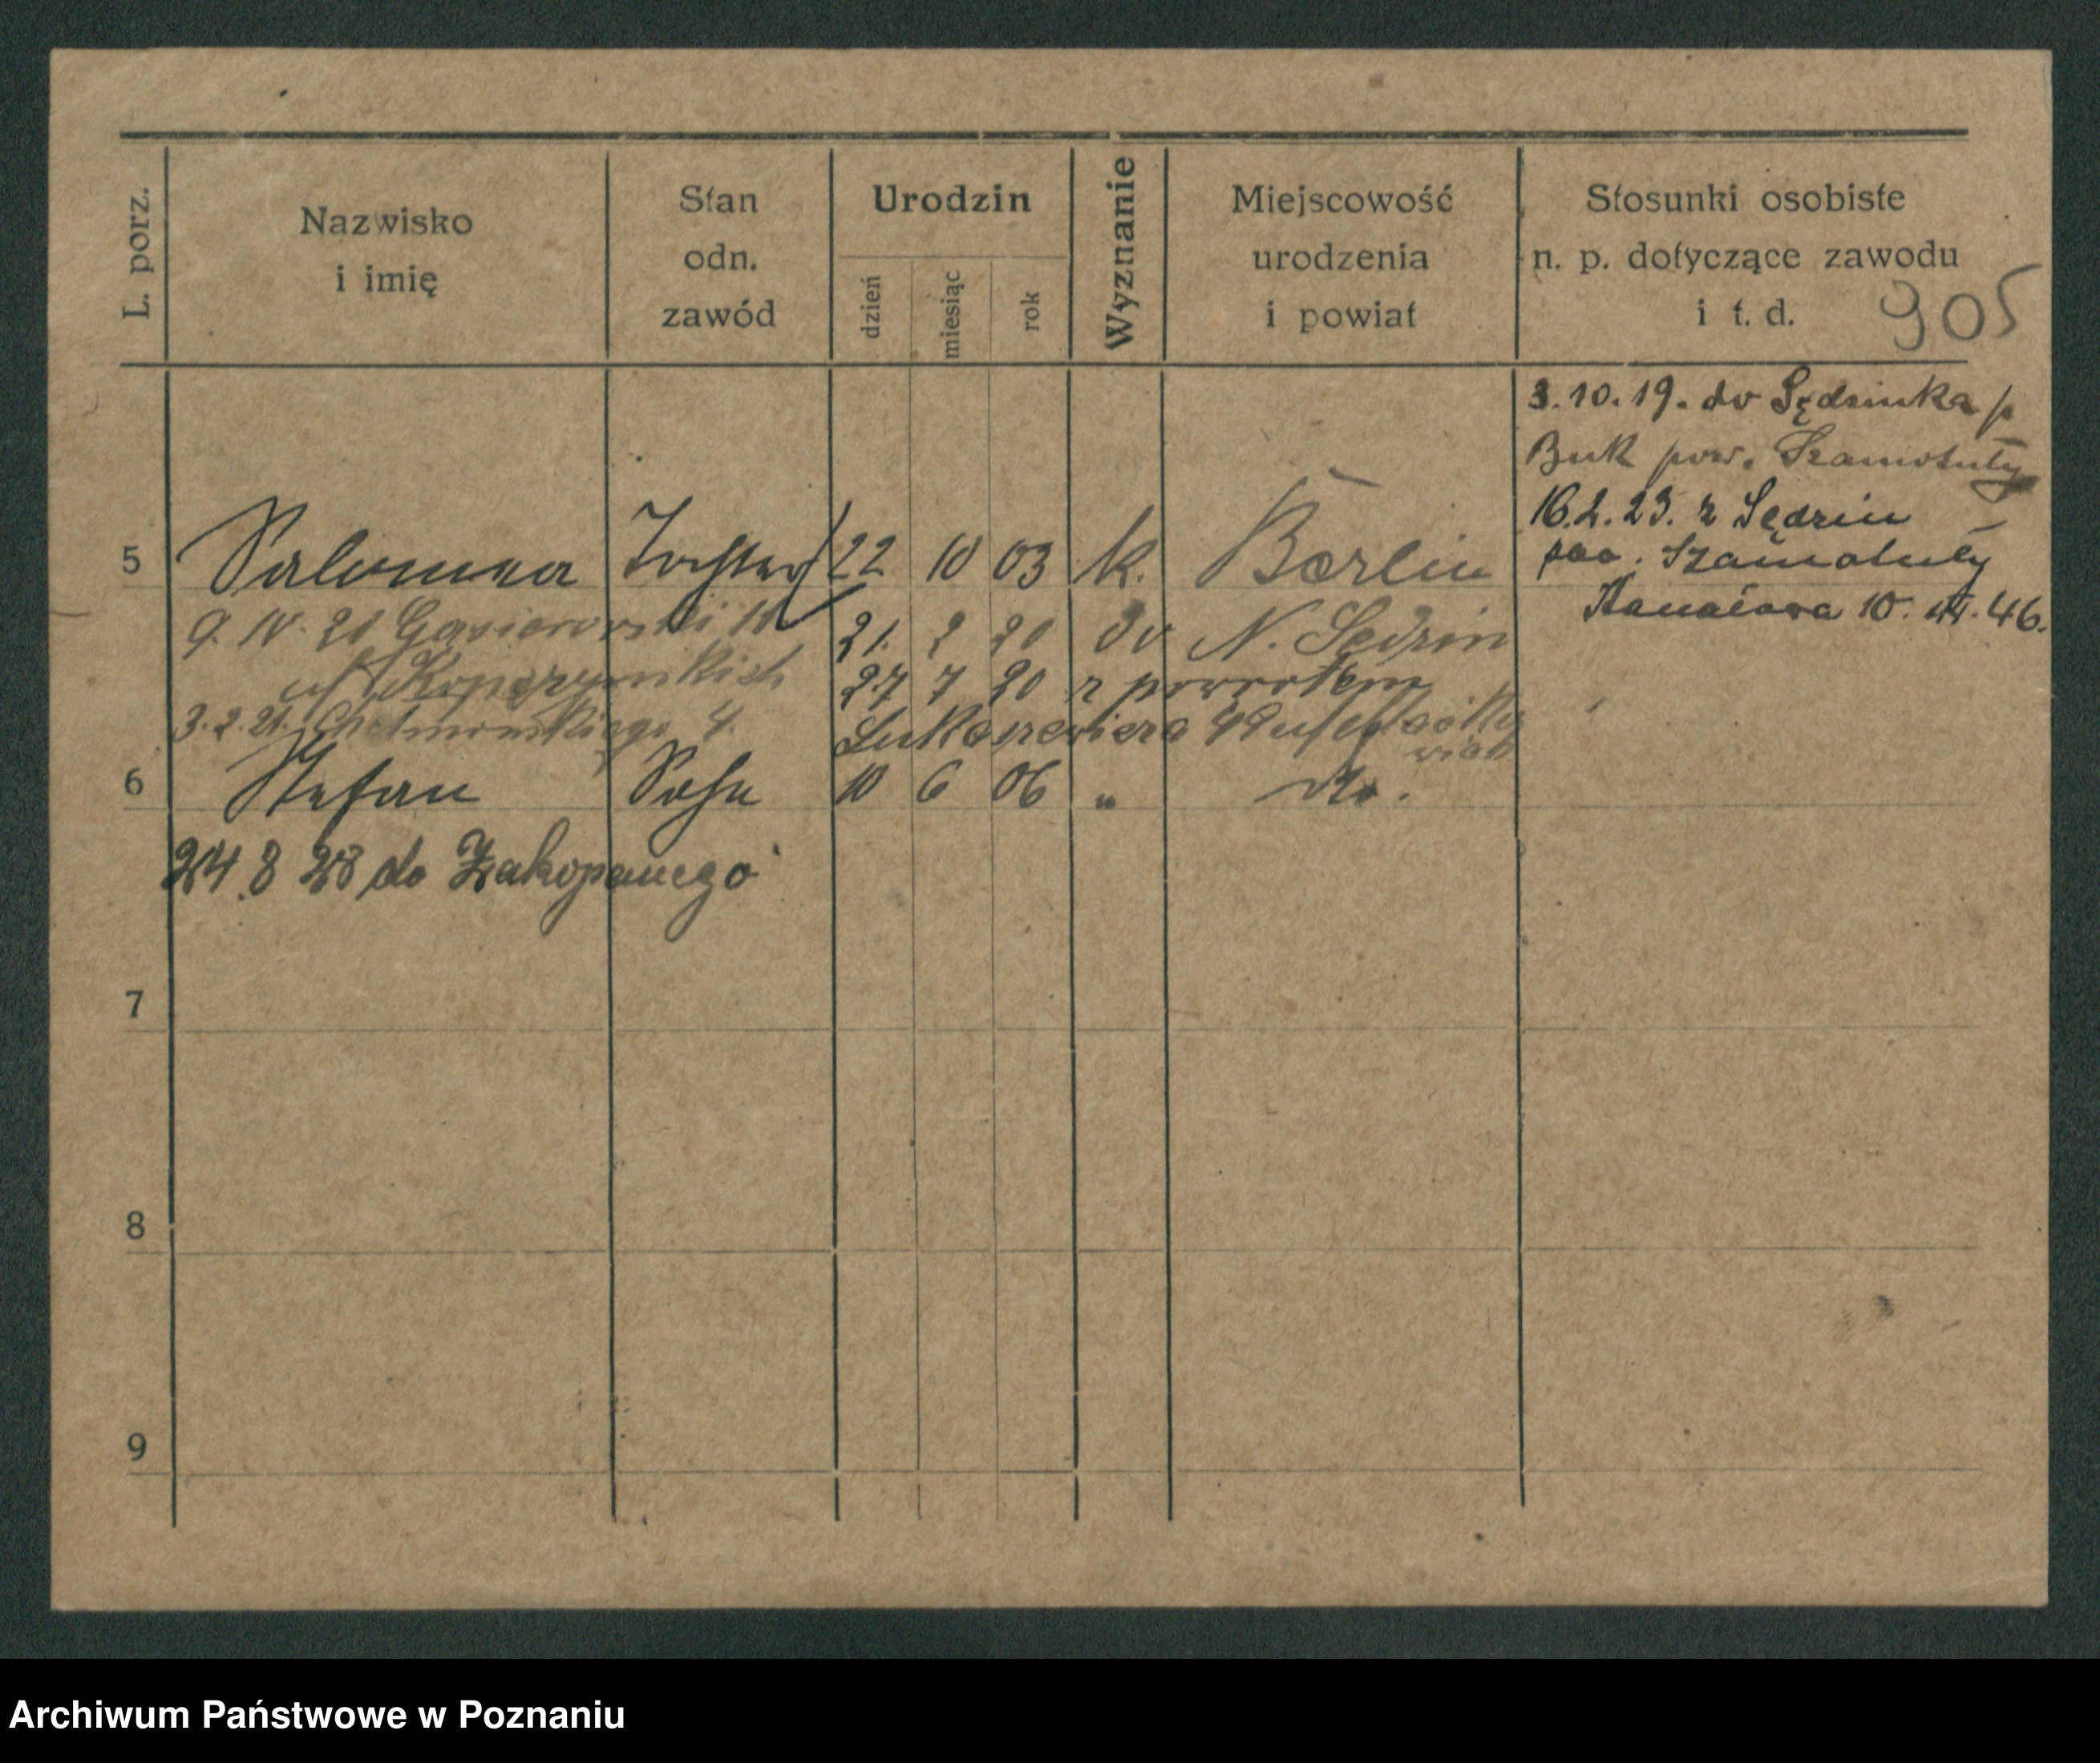 L. porz.
Nazwisko
i imię
Stan
odn.
zawód
Urodzin
dzień
miesiąc
rok
Wyznanie
Miejscowość
urodzenia
i powiat
Stosunki osobiste
n. p. dotyczące zawodu
i t. d.
905
3.10.19. do Sędzinka p
Buk pow. Szamotuły
16.2.23. z Sędzin
pow. Szamotuły
10. 46.
5 Salomea Tochter 22 10 03 k. Berlin
9. IV. 20 Gąsiorowskich 21. 2 20 do N. Sędzin
uf 27 7 20 z powrotem
3. 2. 21. 4. Łukaszewicza
6 Stefan Sohn 10 6 06 " do.
24. 8 28 do Zakopanego
7
8
9
Archiwum Państwowe w Poznaniu